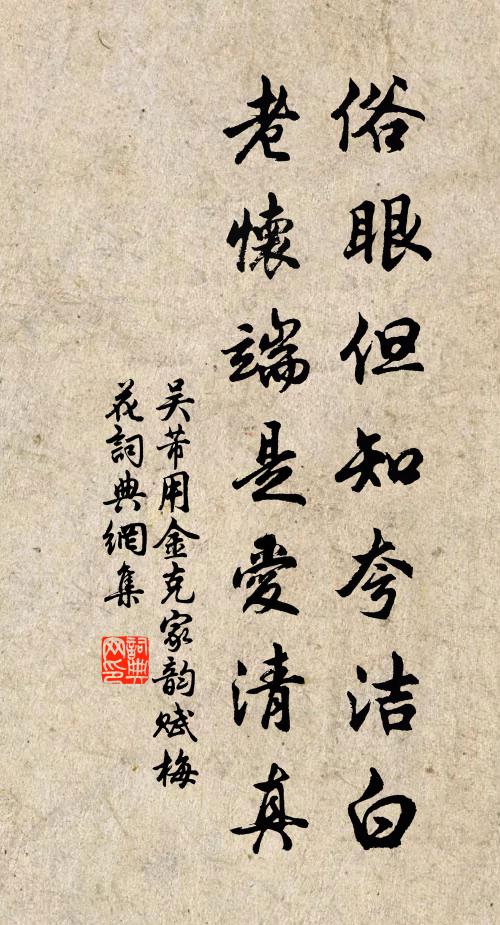 俗眼但知夸洁白
老懷端是愛清真
吴芾用金克家韵赋梅
花詞典網集
詞典
网印